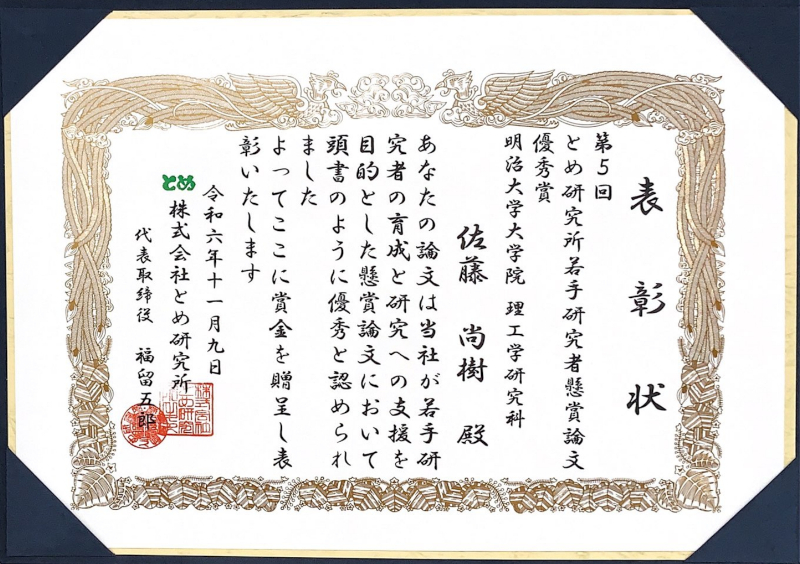 表彰状
第5回
とめ研究所若手研究者懸賞論文
優秀賞
明治大学大学院 理工学研究科
佐藤 尚樹 殿
あなたの論文は当社が若手研
究者の育成と研究への支援を
目的とした懸賞論文において
頭書のように優秀と認められ
ました
よってここに賞金を贈呈し表
彰いたします
令和六年十一月九日
とめ 株式会社とめ研究所
代表取締役 福留五郎